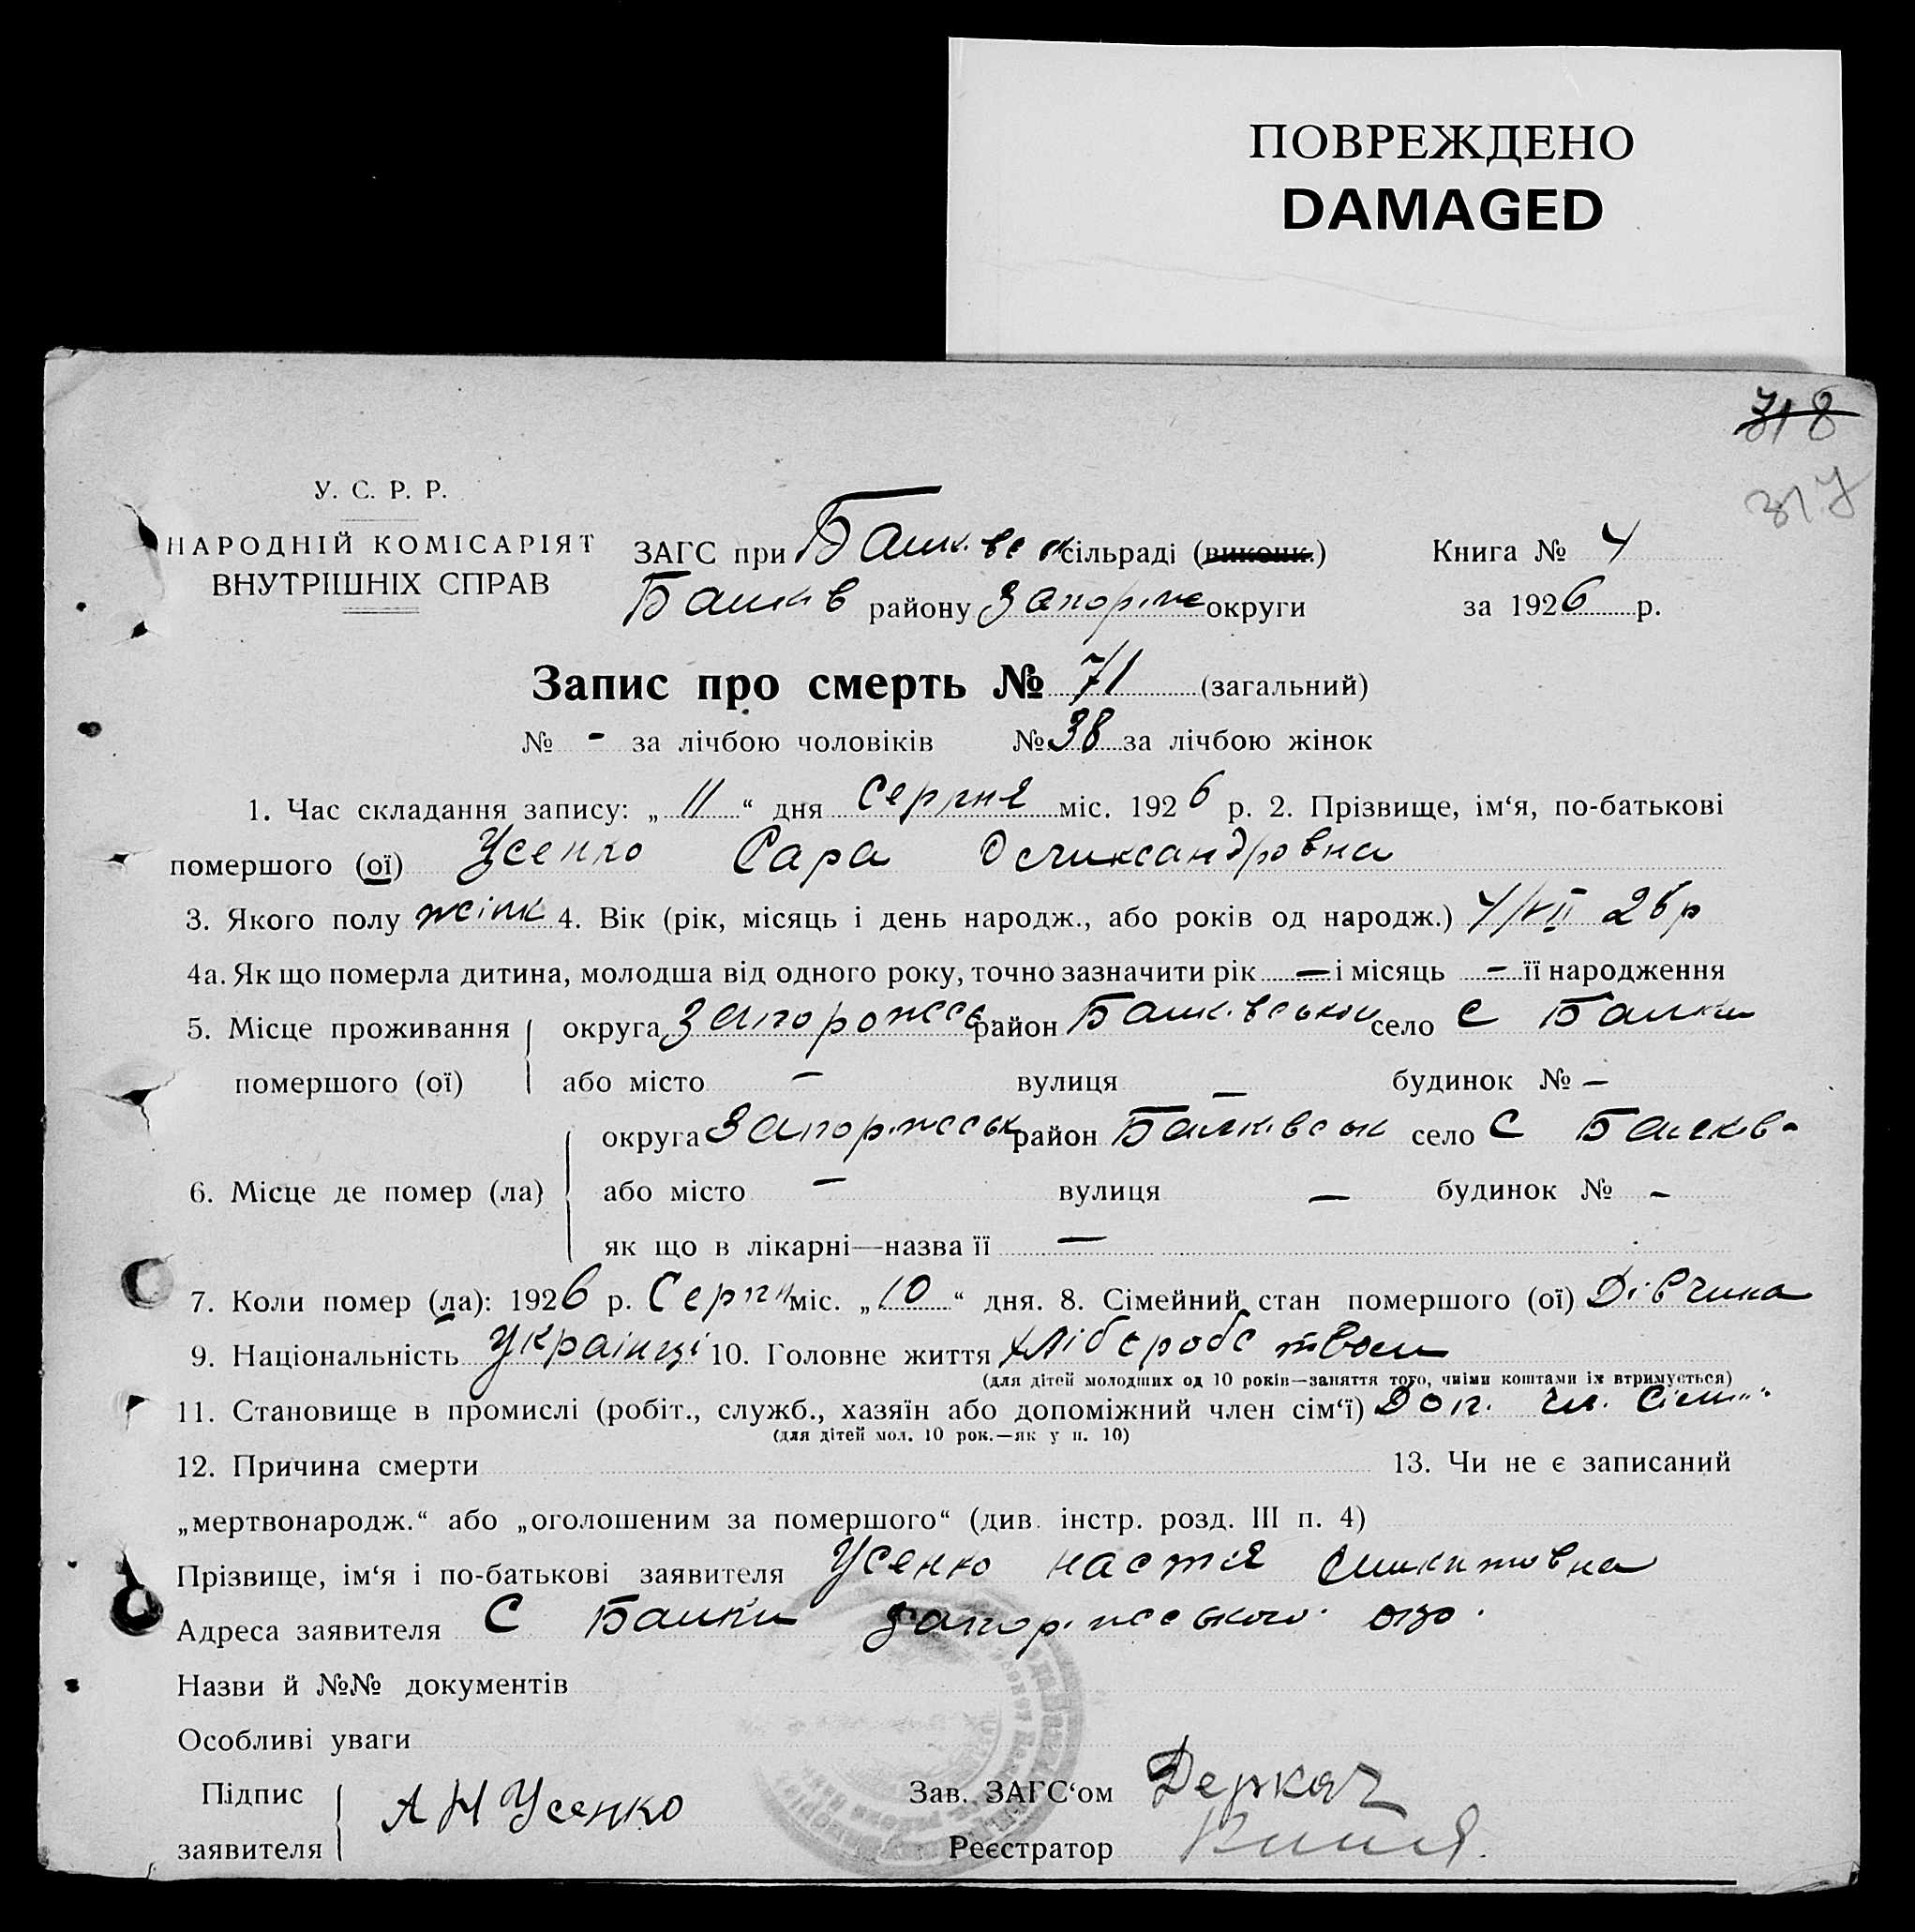 ПОВРЕЖДЕНО
DAMAGED
318
317
У. С. Р. Р.
НАРОДНІЙ КОМІСАРІЯТ
ВНУТРІШНІХ СПРАВ
ЗАГС при сільраді (виконк.) Книга № 4
району округи за 1926 р.
Запис про смерть № 71 (загальний)
№ - за лічбою чоловіків № 38 за лічбою жінок
1. Час складання запису: „ 11 “ дня серпня міс. 1926 р. 2. Прізвище, ім‘я, по-батькові
помершого (ої) Усенко Сара Олиександровна
3. Якого полу жінк 4. Вік (рік, місяць і день народж., або років од народж.) 26 р
4а. Як що померла дитина, молодша від одного року, точно зазначити рік — і місяць - її народження
5. Місце проживання округа район село с Балки
помершого (ої) або місто — вулиця — будинок № —
округа район село с
6. Місце де помер (ла) або місто — вулиця — будинок № -
як що в лікарні—назва її —
7. Коли помер (ла): 1926 р. Серпн міс. „ 10 “ дня. 8. Сімейний стан помершого (ої) Дівчина
9. Національність 10. Головне життя хліборобством
(для дітей молодших од 10 років—заняття того, чиїми коштами їх втримується)
11. Становище в промислі (робіт., служб., хазяїн або допоміжний член сім‘ї) Доп. чл. сім
(для дітей мол. 10 рок.—як у п. 10)
12. Причина смерти 13. Чи не є записаний
„мертвонародж.“ або „оголошеним за помершого“ (див. інстр. розд. III п. 4)
Прізвище, ім‘я і по-батькові заявителя Усенко Настя
Адреса заявителя с Балки
Назви й №№ документів
Особливі уваги
Підпис
заявителя А Н Усенко
Зав. ЗАГС‘ом Деркач
Реєстратор